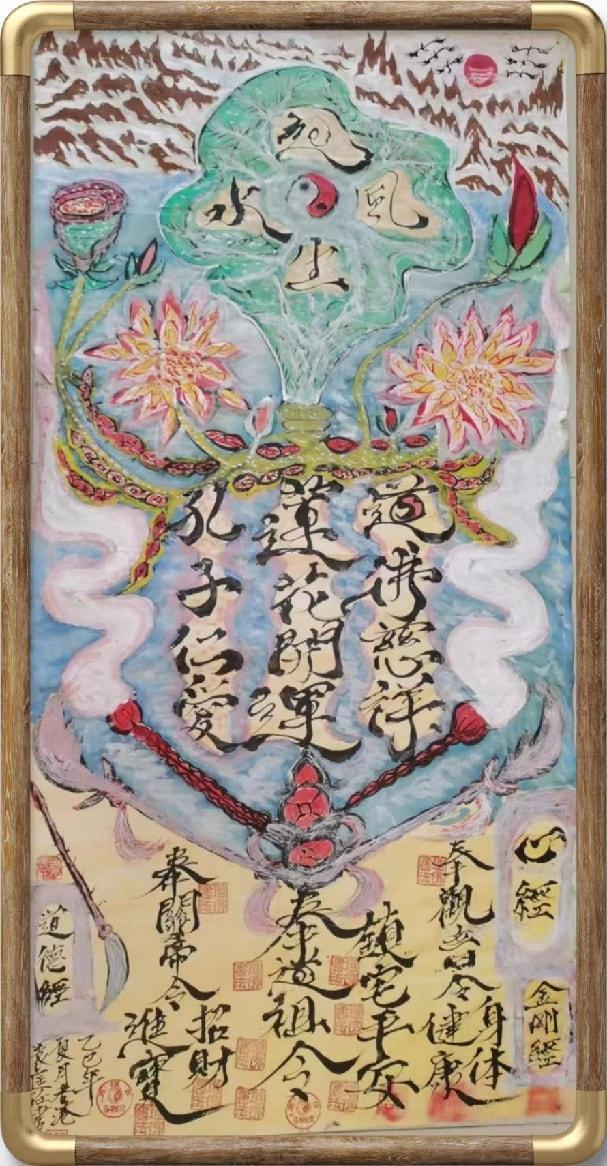 风
生
水
起
道佛慈祥
蓮花開運
孔子仁愛
心經
金剛經
奉觀音令
身体健康
鎮宅平安
奉道祖令
奉關帝令
招財
進寶
道德經
乙巳年
夏月香港